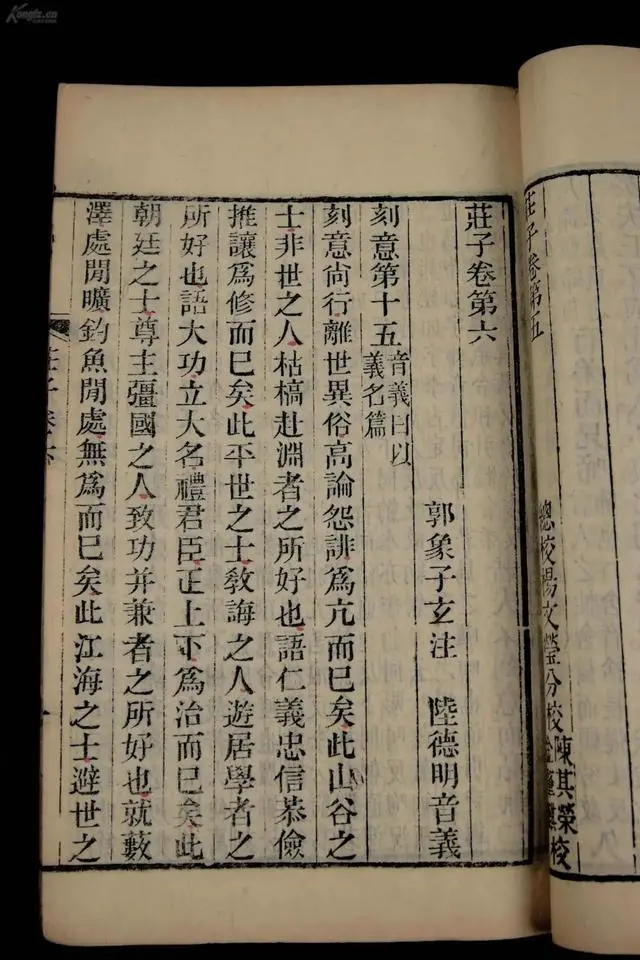 莊子卷第五
總校楊文瑩分校陳其榮校
莊子卷第六
郭象子玄注　陸德明音義
刻意第十五音義曰以義名篇
刻意尚行離世異俗高論怨誹爲亢而已矣此山谷之
士非世之人枯槁赴淵者之所好也語仁義忠信恭儉
推讓爲修而已矣此平世之士教誨之人遊居學者之
所好也語大功立大名禮君臣正上下爲治而已矣此
朝廷之士尊主彊國之人致功并兼者之所好也就藪
澤處閒曠釣魚閒處無爲而已矣此江海之士避世之
Kongfz.cn